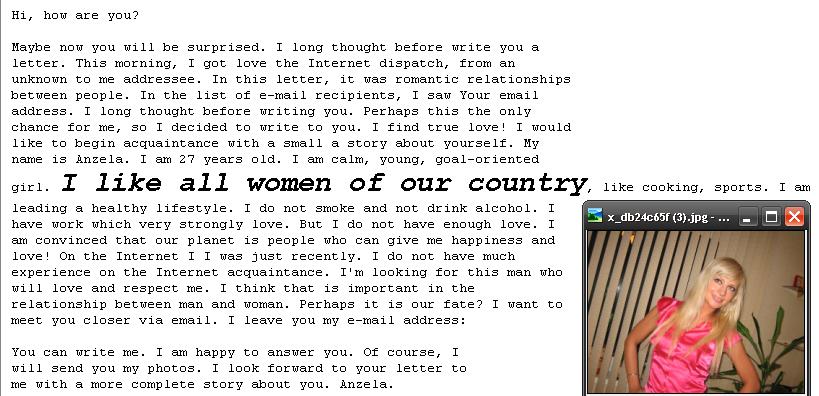 Hi, how are you?
Maybe now you will be surprised. I long thought before write you a
letter. This morning, I got love the Internet dispatch, from an
unknown to me addressee. In this letter, it was romantic relationships
between people. In the list of e-mail recipients, I saw Your email
address. I long thought before writing you. Perhaps this the only
chance for me, so I decided to write to you. I find true love! I would
like to begin acquaintance with a small a story about yourself. My
name is Anzela. I am 27 years old. I am calm, young, goal-oriented
girl. I like all women of our country, like cooking, sports. I am
leading a healthy lifestyle. I do not smoke and not drink alcohol. I
have work which very strongly love. But I do not have enough love. I
am convinced that our planet is people who can give me happiness and
love! On the Internet I I was just recently. I do not have much
experience on the Internet acquaintance. I'm looking for this man who
will love and respect me. I think that is important in the
relationship between man and woman. Perhaps it is our fate? I want to
meet you closer via email. I leave you my e-mail address:
You can write me. I am happy to answer you. Of course, I
will send you my photos. I look forward to your letter to
me with a more complete story about you. Anzela.
x_db24c65f (3).jpg - ...